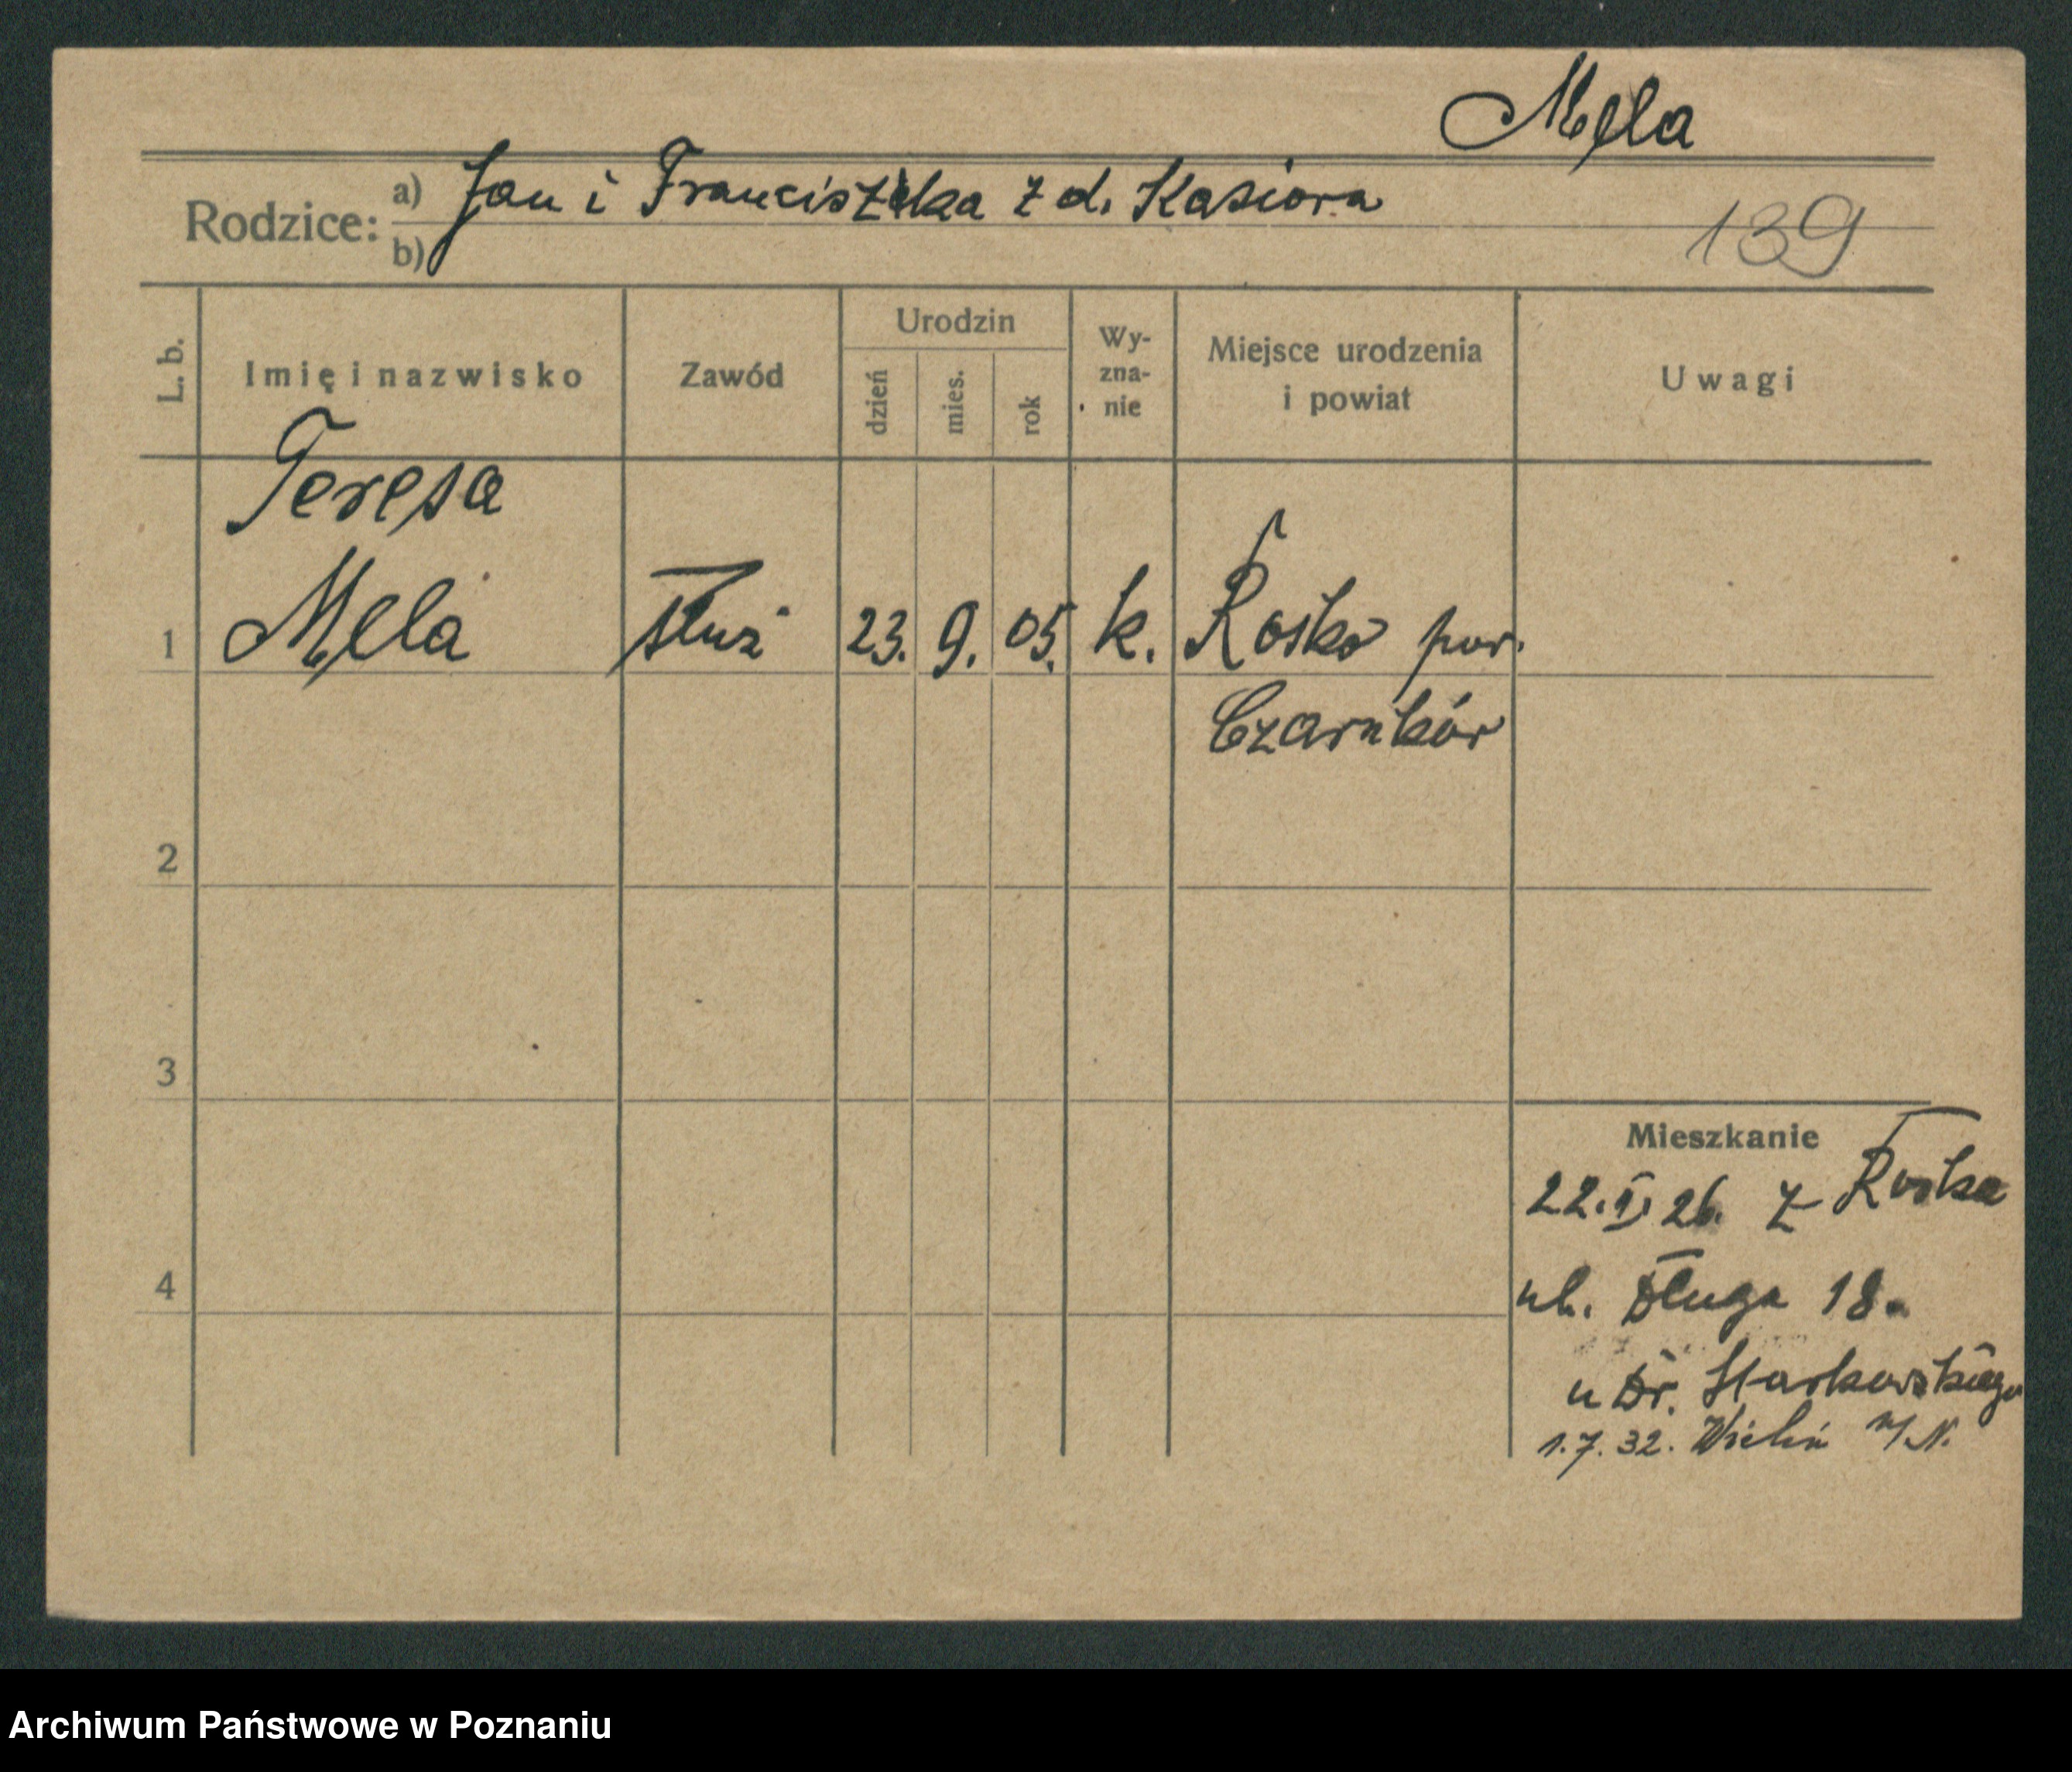 Mela
Rodzice: a) Jan i Franciszka z d. Kasiora
b)
139
L. b.
Imię i nazwisko
Zawód
Urodzin
dzień
mies.
rok
Wy-
zna-
nie
Miejsce urodzenia
i powiat
Uwagi
Teresa
1 Mela służ 23. 9. 05. k. Rosko pow.
Czarnków
2
3
4
Mieszkanie
22. 26. z Roska
ul. Długa 18.
u Dr.
1.7.32. Wieleń n/N.
Archiwum Państwowe w Poznaniu